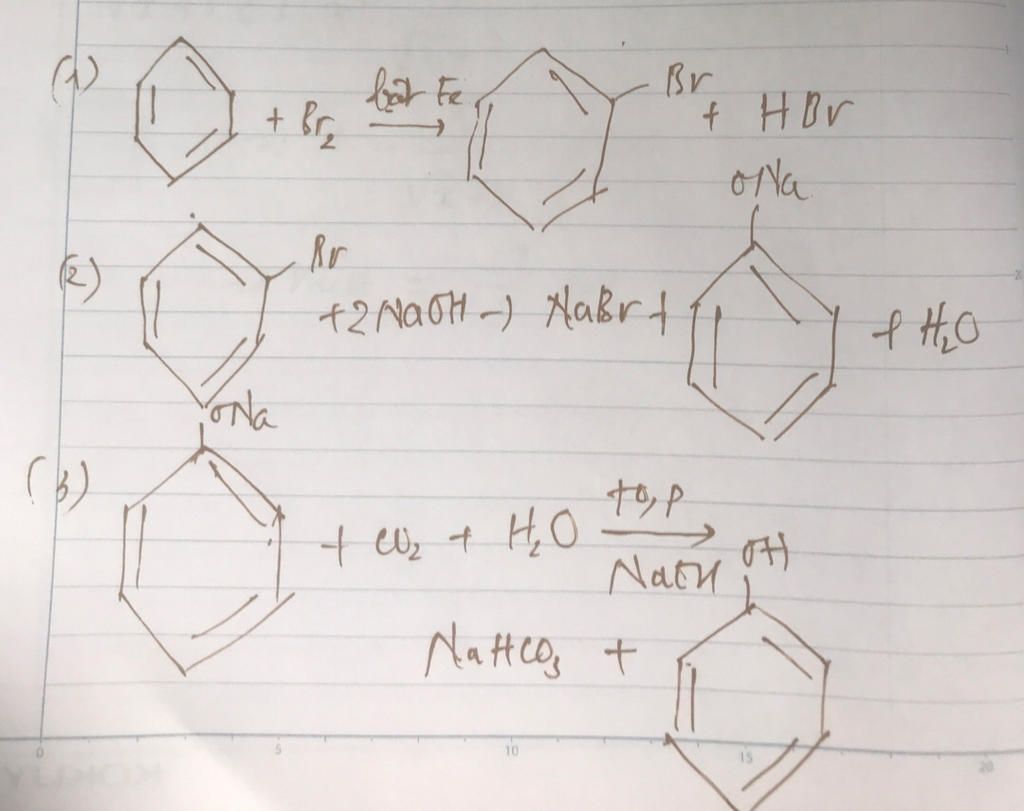 (1) + Br₂ bột Fe → Br + HBr
(2) Br + 2NaOH → NaBr + ONa + H₂O
(3) ONa + CO₂ + H₂O t⁰, p → NaOH
NaHCO₃ + OH
0 5 10 15 20